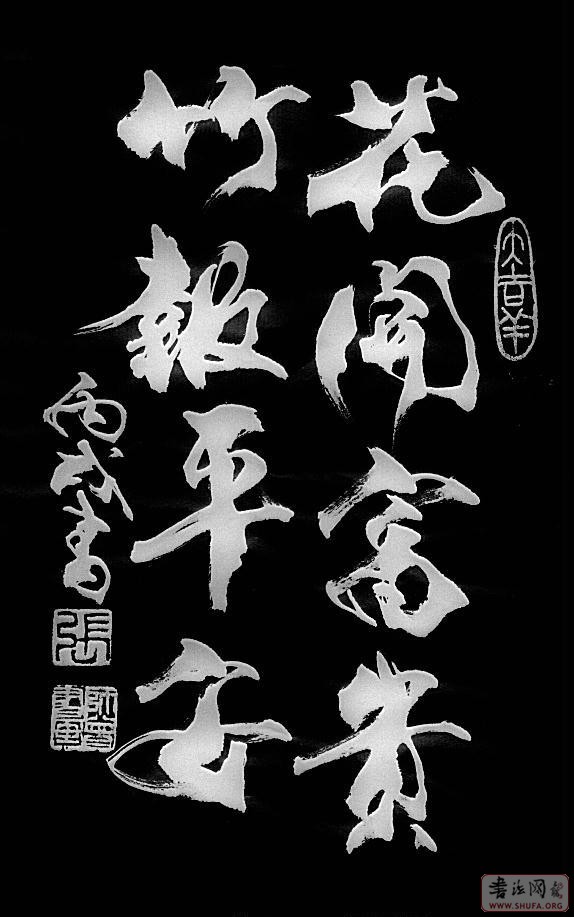 花開富貴
竹報平安
丙戌書
大吉羊
張
書法网
WWW.SHUFA.ORG